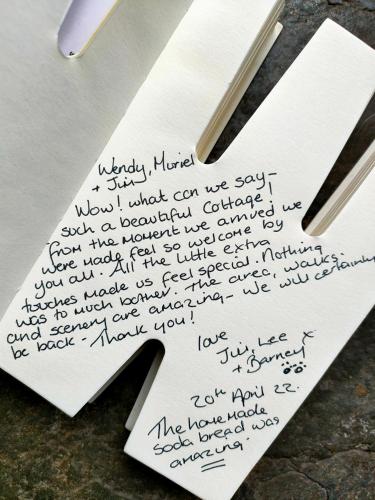 Wendy, Muriel
+ Jim
Wow! what can we say -
such a beautiful Cottage!
from the moment we arrived we
were made feel so welcome by
you all. All the little extra
touches made us feel special. Nothing
was to much bother. The area, walks
and scenery are amazing - we will certainly
be back - Thank you!
love
Jill, Lee x
+ Barney
20th April 22.
The homemade
soda bread was
amazing.